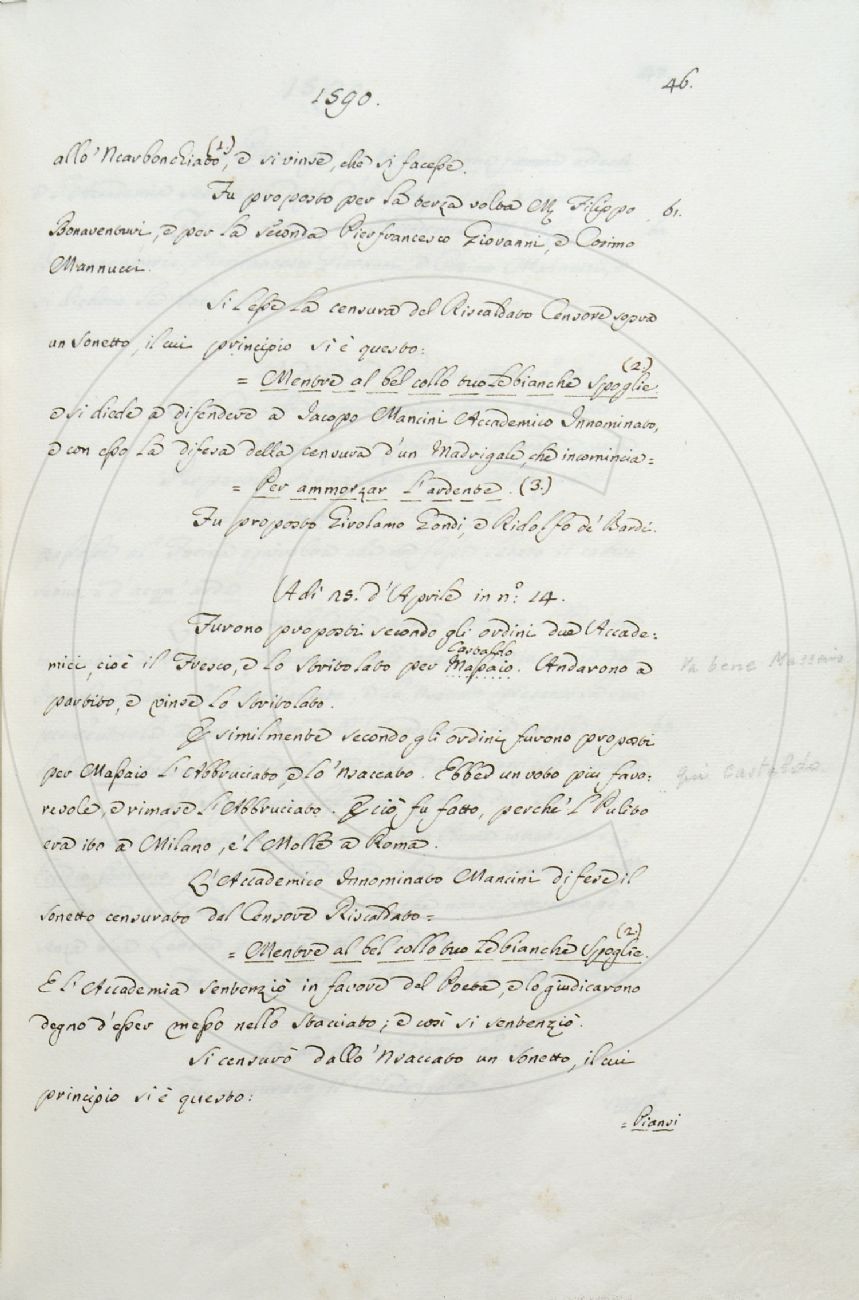 1590.
46.
allo 'Ncarbonchiato(1.), e si vinse, che si facesse.
Fu proposto per la terza volta M. Filippo
61.
Bonaventuri, e per la seconda Pierfrancesco Giovanni, e Cosimo
Mannucci.
Si lesse la censura del Riscaldato Censore sopra
un sonetto, il cui principio si è questo:
= Mentre al bel collo tuo le bianche spoglie (2.)
e si diede a difendere a Iacopo Mancini Accademico Innominato,
e con esso la difesa della censura d'un Madrigale, che incomincia=
= Per ammorzar l'ardente. (3.)
Fu proposto Girolamo Gondi, e Ridolfo de' Bardi.
Adì 25. d'Aprile in n.º 14.
Furono proposti secondo gli ordini due Accade=
Castaldo
mici, cioè il Fresco, e lo Stritolato per Massaio. Andarono a
va bene Massaio
partito, e vinse lo Stritolato.
E similmente secondo gli ordini furono proposti
per Massaio l'Abbruciato, e lo 'Nsaccato. Ebbe un voto più favo=
qui Castaldo
revole, e rimase l'Abbruciato. E ciò fu fatto, perchè 'l Pulito
era ito a Milano, e 'l Molle a Roma.
L'Accademico Innominato Mancini difese il
sonetto censurato dal Censore Riscaldato=
= Mentre al bel collo tuo le bianche spoglie. (2.)
E l'Accademia sentenziò in favore del Poeta, e lo giudicarono
degno d'esser messo nello stacciato; e così si sentenziò.
Si censurò dallo 'Nsaccato un sonetto, il cui
principio si è questo:
= Piansi